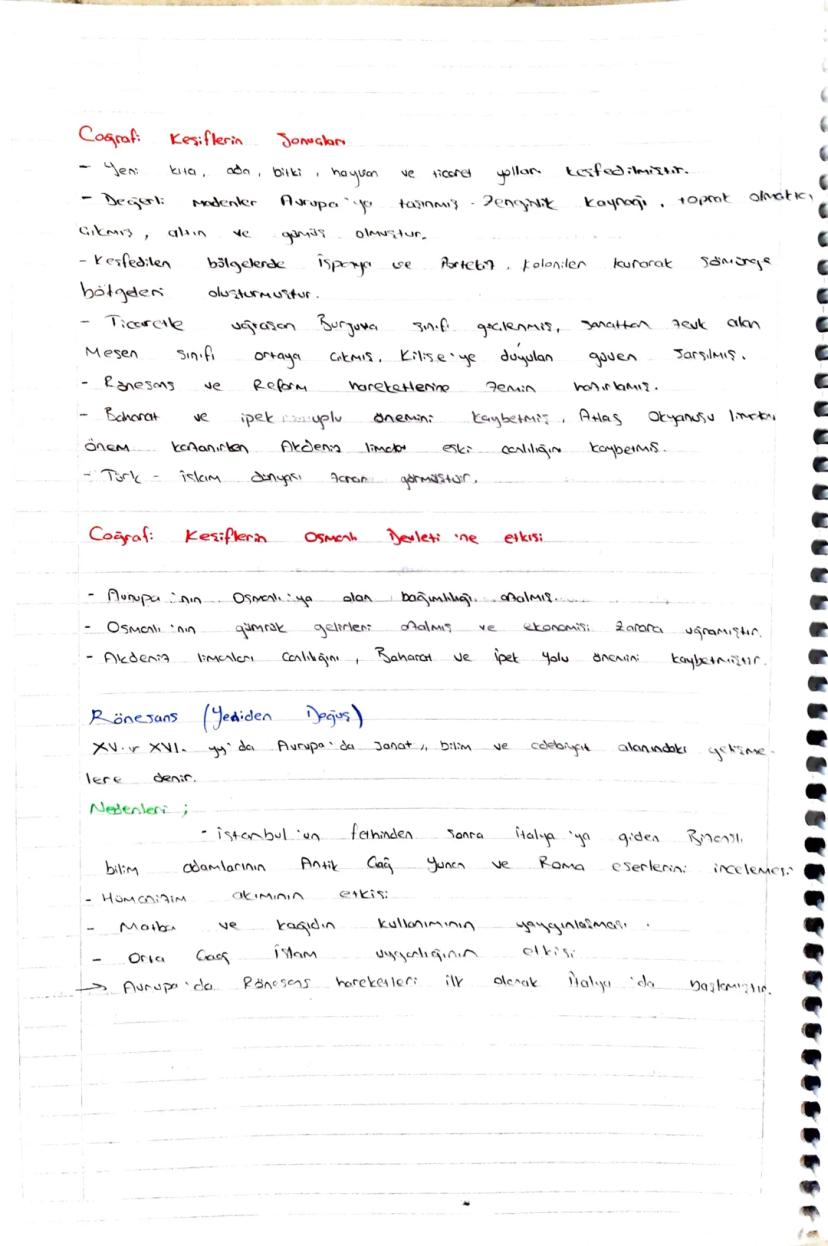 Coğrafi Keşiflerin Sonuçları
- Yeni kıta, ada, bitki, hayvan ve ticaret yolları keşfedilmiştir.
- Değerli madenler Avrupa'ya taşınmış. Zenginlik kaynağı, toprak olmaktan
çıkmış, altın ve gümüş olmuştur.
- Keşfedilen bölgelerde İspanya ve Portekiz, koloniler kurarak sömürge
bölgeleri oluşturmuştur.
- Ticaretle uğraşan Burjuva sınıfı güçlenmiş, sanattan zevk alan
Mesen sınıfı ortaya çıkmış, Kilise'ye duyulan güven sarsılmış.
- Rönesans ve Reform hareketlerine zemin hazırlamış.
- Baharat ve ipek önemini kaybetmiş, Atlas Okyanusu limanları
önem kazanırken Akdeniz limanları eski canlılığını kaybetmiş.
- Türk - islam dünyası zarar görmüştür.
Coğrafi Keşiflerin Osmanlı Devleti'ne etkisi
- Avrupa'nın Osmanlı'ya olan bağımlılığı azalmış.
- Osmanlı'nın gümrük gelirleri azalmış ve ekonomisi zarara uğramıştır.
- Akdeniz limanları canlılığını, Baharat ve İpek Yolu önemini kaybetmiştir.
Rönesans (Yediden Doğuş)
XV. ve XVI. yy'da Avrupa'da sanat, bilim ve edebiyat alanındaki gelişme-
lere denir.
Nedenleri;
- İstanbul'un fethinden sonra İtalya'ya giden Bizanslı
bilim adamlarının Antik Çağ Yunan ve Roma eserlerini incelemesi
- Hümanizim akımının etkisi
- Matba ve kağıdın kullanımının yaygınlaşması.
- Orta Çağ İslam uygarlığının etkisi
→ Avrupa'da Rönesans hareketleri ilk olarak İtalya'da başlamıştır.